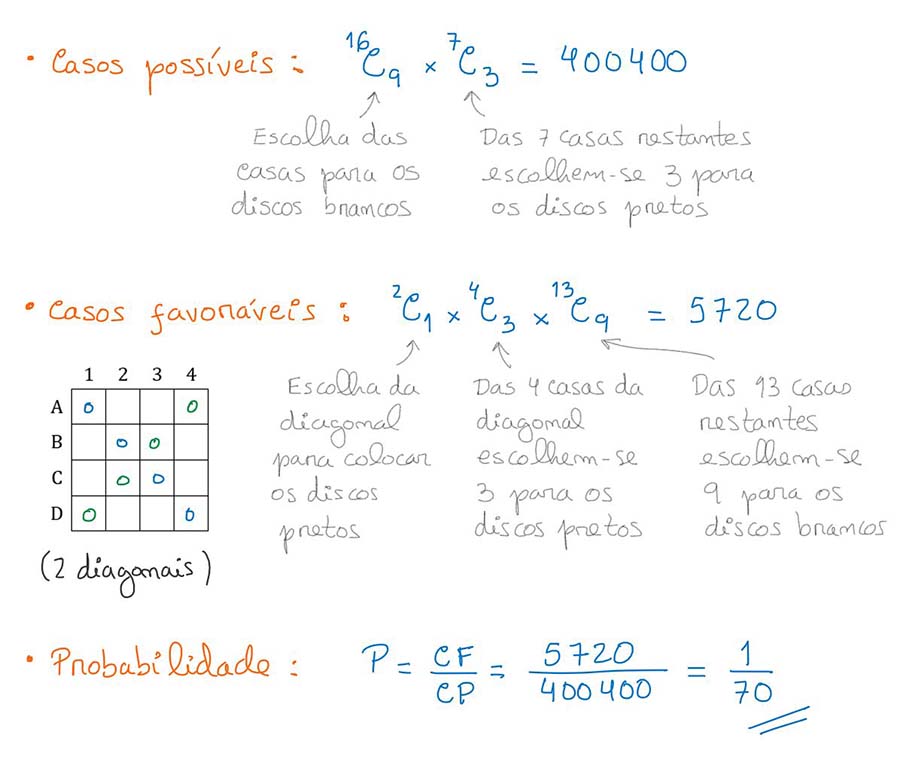 • Casos possíveis : ¹⁶C₉ × ⁷C₃ = 400400
Escolha das
casas para os
discos brancos
Das 7 casas restantes
escolhem-se 3 para
os discos pretos
• Casos favoráveis : ²C₁ × ⁴C₃ × ¹³C₉ = 5720
1 2 3 4
A
B
C
D
(2 diagonais)
Escolha da
diagonal
para colocar
os discos
pretos
Das 4 casas da
diagonal
escolhem-se
3 para os
discos pretos
Das 13 casas
restantes
escolhem-se
9 para os
discos brancos
• Probabilidade : P = CF/CP = 5720/400400 = 1/70